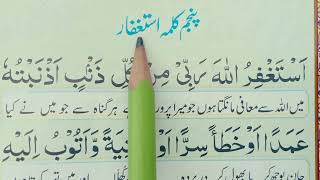 پنجم کلمہ استغفار
اَسْتَغْفِرُ اللهَ رَبِّىْ مِنْ كُلِّ ذَنْۢبٍ اَذْنَبْتُهٗ
میں اللہ سے معافی مانگتا ہوں جو میرا پرور ہر گناہ سے جو میں نے کیا
عَمَدًا اَوْخَطَأً سِرًّا اَوْ نِيَةً وَّاَتُوْبُ اِلَيْهِ
جان بوجھ کر یا بھول کر